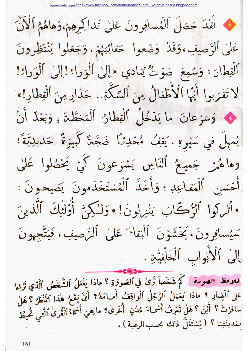 لَقَدْ حَصَلَ الْمُسَافِرُونَ عَلَى تَذَاكِرِهِمْ، وَهَاهُمُ الْآنَ
عَلَى الرَّصِيفِ، وَقَدْ وَضَعُوا حَقَائِبَهُمْ، وَجَعَلُوا يَنْتَظِرُونَ
الْقِطَارَ. وَسُمِعَ صَوْتٌ يُنَادِي: «إِلَى الْوَرَاءِ! إِلَى الْوَرَاءِ!
لَا تَقْرَبُوا أَيُّهَا الْأَطْفَالُ مِنَ السِّكَّةِ. حَذَارِ مِنَ الْقِطَارِ!»
وَسُرْعَانَ مَا يَدْخُلُ الْقِطَارُ الْمَحَطَّةَ، وَبَعْدَ أَنْ
يَتَمَهَّلَ فِي سَيْرِهِ، يَقِفُ مُحْدِثًا ضَجَّةً كَبِيرَةً حَدِيدِيَّةً؛
وَهَا هُمْ جَمِيعُ النَّاسِ يُسْرِعُونَ كَيْ يَحْصُلُوا عَلَى
أَحْسَنِ الْمَقَاعِدِ؛ وَأَخَذَ الْمُسْتَخْدَمُونَ يَصِيحُونَ:
«اُتْرُكُوا الرُّكَّابَ يَنْزِلُونَ!» وَلَكِنَّ أُولَئِكَ الَّذِينَ
سَيُسَافِرُونَ، يَخْشَوْنَ الْبَقَاءَ عَلَى الرَّصِيفِ، فَيَتَّجِهُونَ
إِلَى الْأَبْوَابِ الْخَلْفِيَّةِ.
لِنُلَاحِظِ الصُّورَةَ كَمْ شَخْصًا تَرَى فِي الصُّورَةِ؟ مَاذَا يَعْمَلُ الشَّخْصُ الَّذِي تَرَاهُ
عَلَى الْيَسَارِ؟ مَاذَا يَعْمَلُ الرَّجُلُ الْوَاقِفُ أَمَامَهُ؟ أَيْنَ يَقَعُ هَذَا الْمَنْظَرُ؟ هَلْ
161